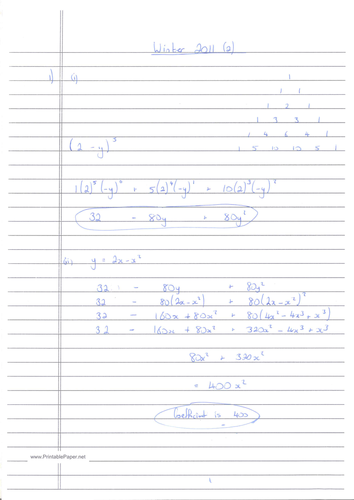 Winter 2011 (2)
1) (i)
1
1 1
1 2 1
1 3 3 1
1 4 6 4 1
1 5 10 10 5 1
(2 - y)⁵
1(2)⁵(-y)⁰ + 5(2)⁴(-y)¹ + 10(2)³(-y)²
32 - 80y + 80y²
(ii) y = 2x - x²
32 - 80y + 80y²
32 - 80(2x - x²) + 80(2x - x²)²
32 - 160x + 80x² + 80(4x² - 4x³ + x³)
32 - 160x + 80x² + 320x² - 4x³ + x³
80x² + 320x²
= 400x²
Coefficient is 400
www.PrintablePaper.net
1